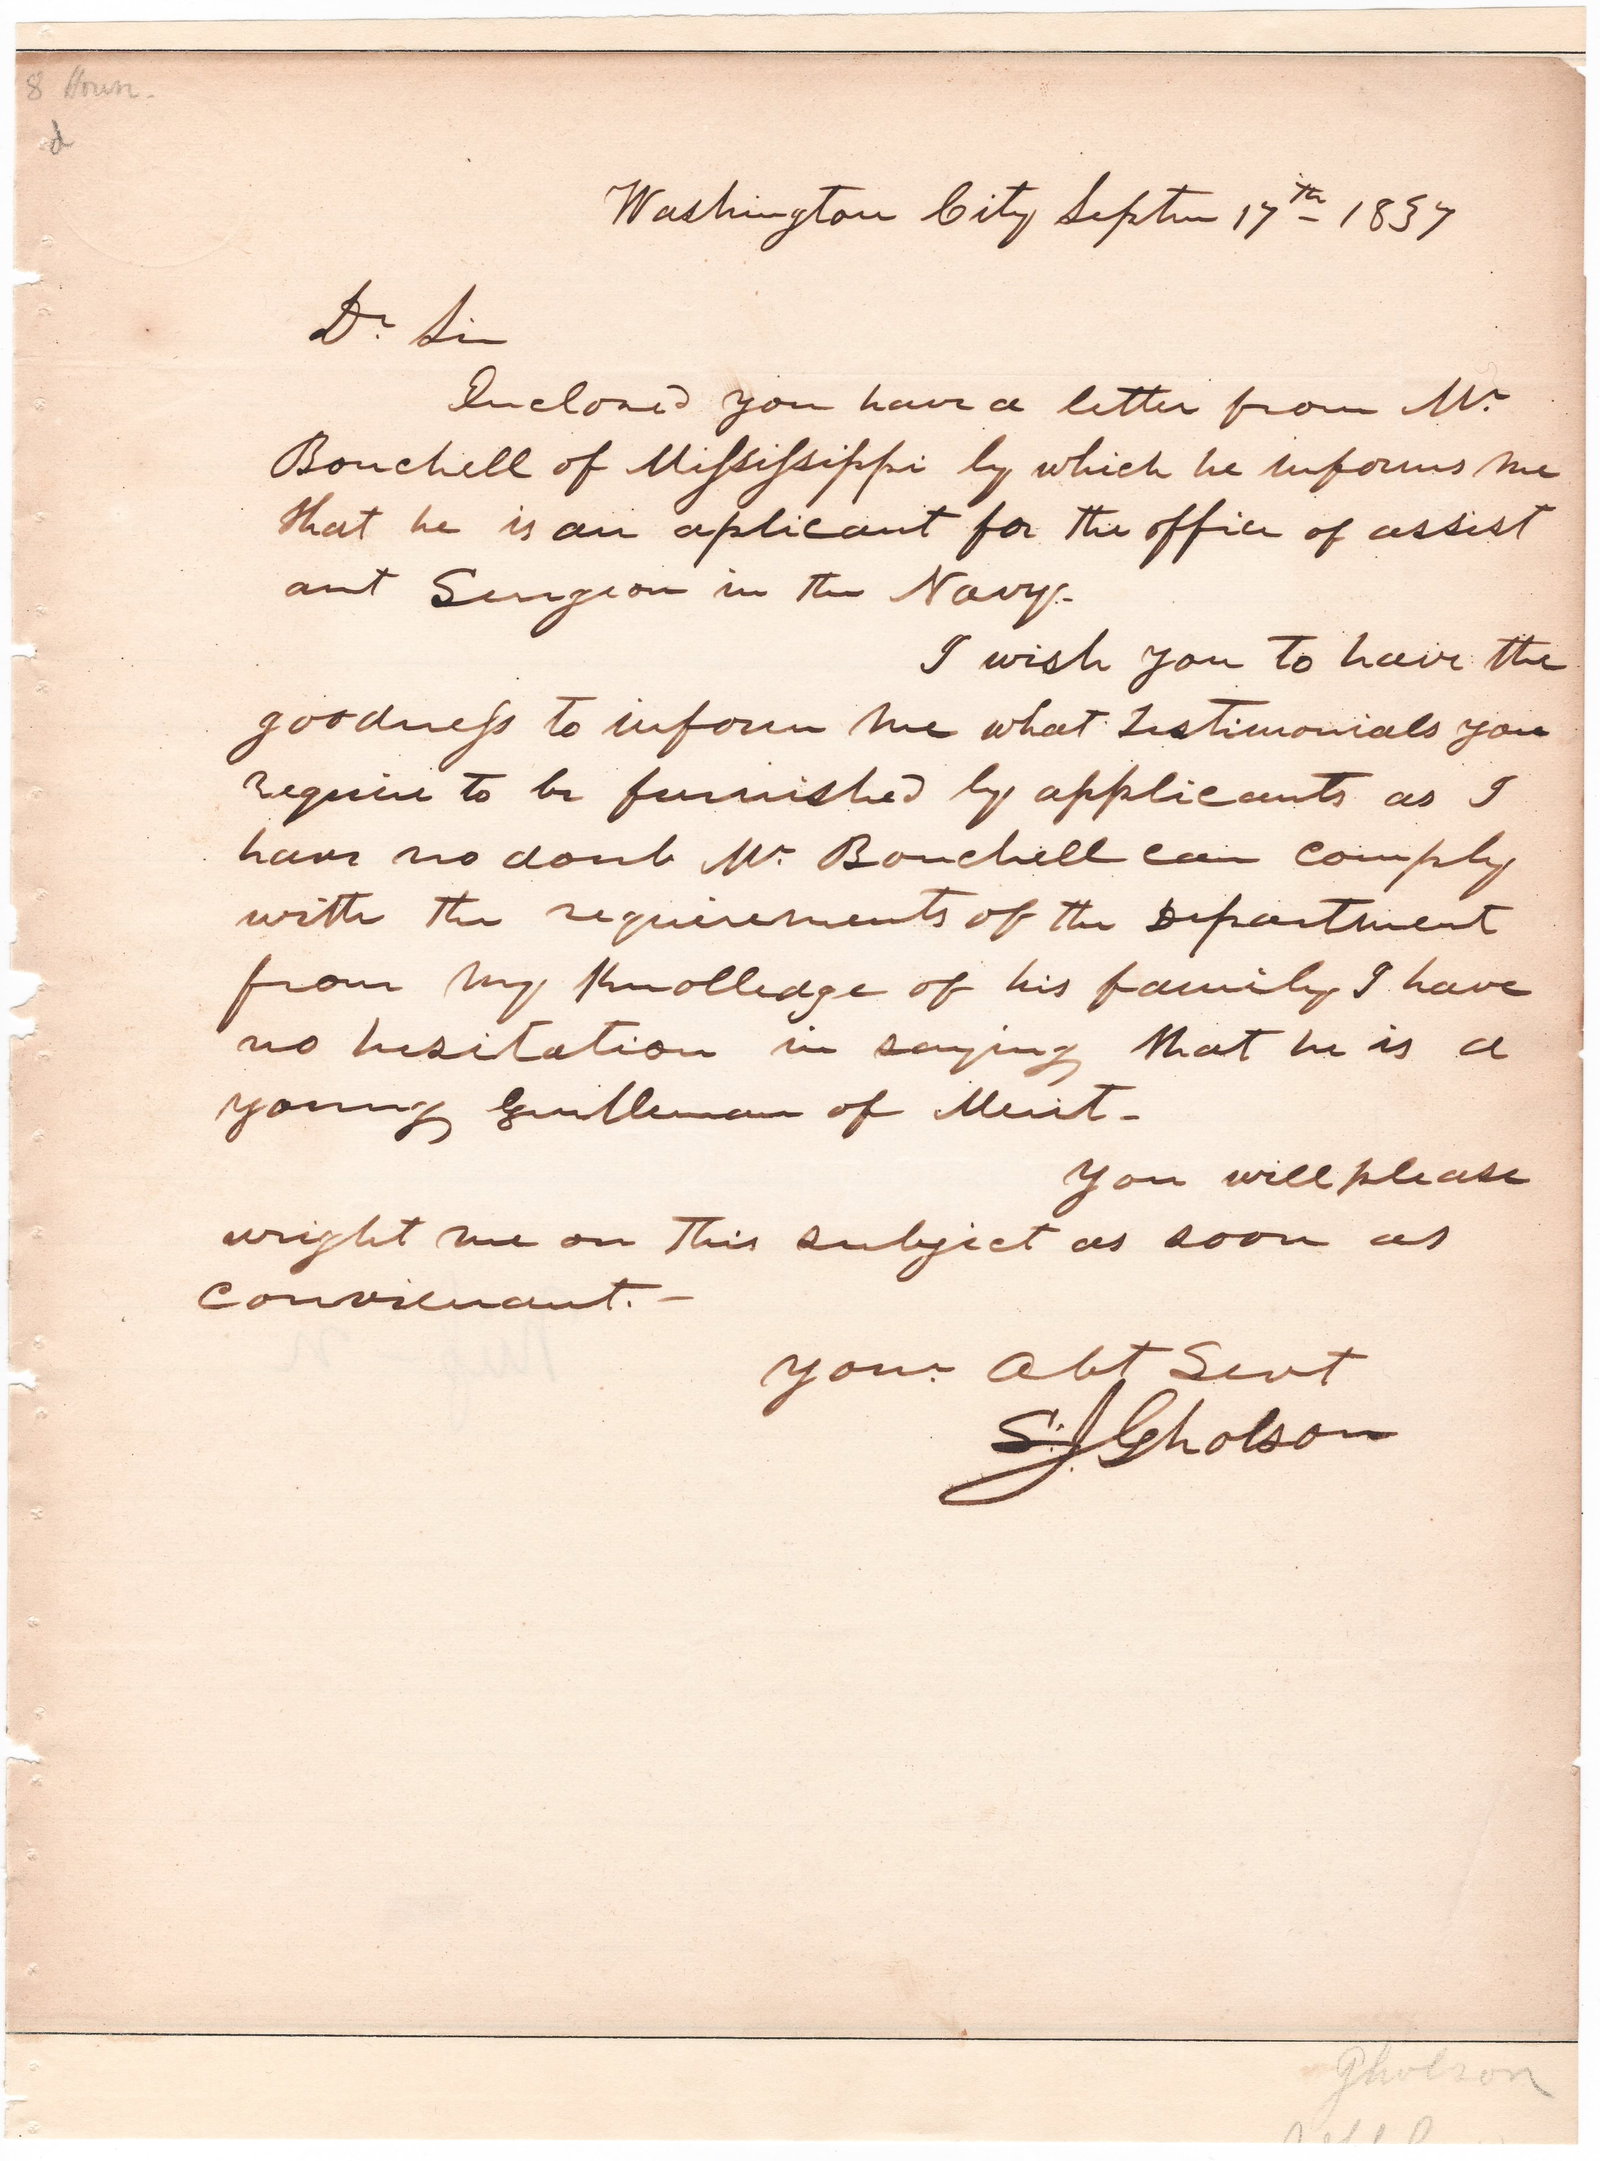 Washington City Septm 17th 1837
Dr. Sir
Enclosed you have a letter from Mr
Bouchell of Mississippi by which he informs me
that he is an aplicant for the office of assist
ant Surgeon in the Navy.-
I wish you to have the
goodness to inform me what Testimonials you
require to be furnished by applicants as I
have no doub Mr. Bouchell can comply
with the requirements of the Department
from my Knolledge of his family I have
no hesitation in saying that he is a
young Gentleman of Merit-
You will please
wright me on this subject as soon as
convienant.-
Your Obt Sevt
S.J. Gholson
Gholson